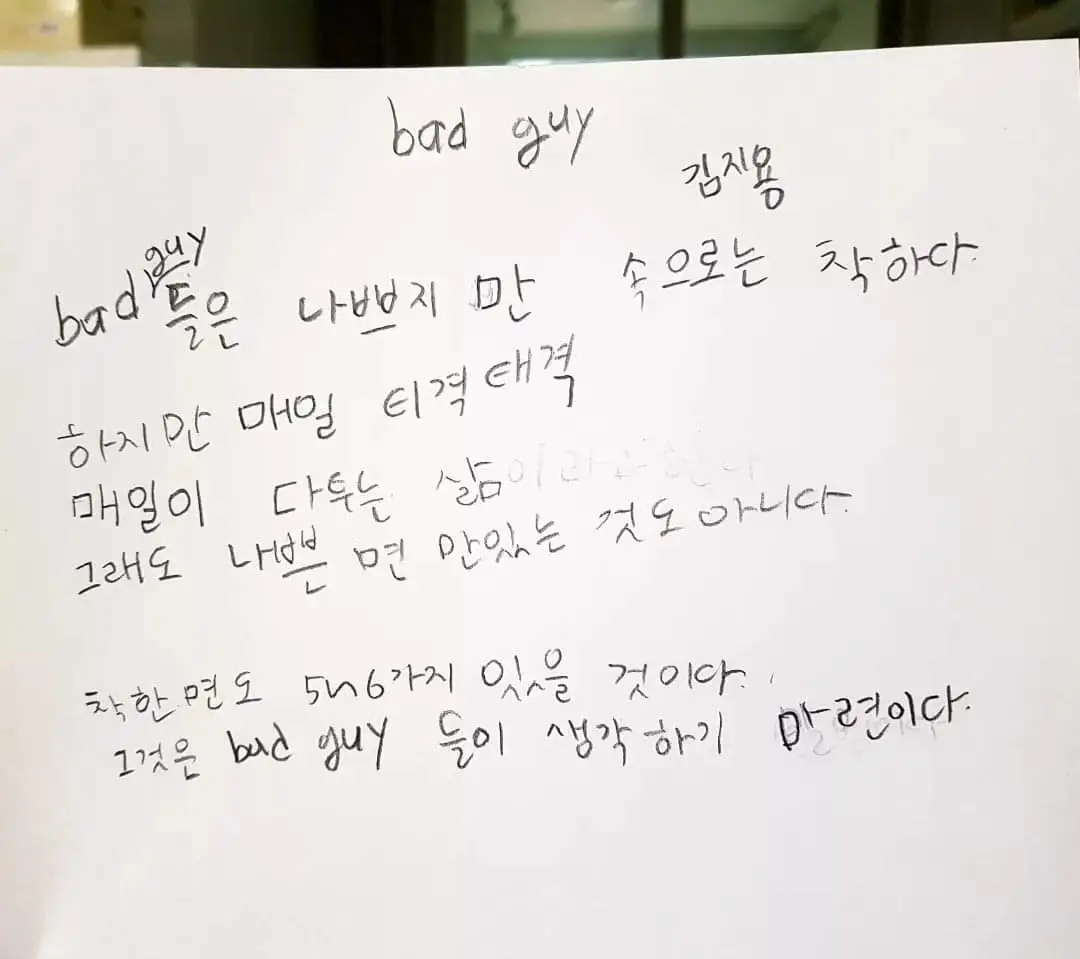 bad guy
김지용
bad guy들은 나쁘지 만 속으로는 착하다.
하지만 매일 티격태격
매일이 다투는 삶
그래도 나쁜 면 만있는 것도 아니다.
착한 면도 5n6가지 잇을 것이다.
그것은 bad guy 들이 생각하기 마련이다.